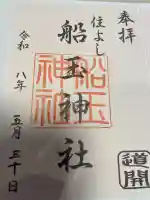 奉拝
住よし
船玉神社
船玉神社
令和八年五月三十日
道開